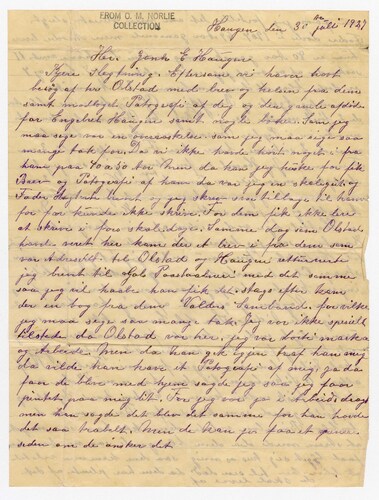 FROM O. M. NORLIE
COLLECTION
Haugen den 3 juli 1927
Her. E Haugen
Kjere Slegtning. Eftersom vi have havt
besøg af her Olstad med brev og helsen fra dem
samt modtog Fotografi af dig og den gamle
for Engebret Haugen samt nogle Som jeg
maa sige var en overaskelse som jeg maa sige saa
mange tak for. Da vi ikke havde hørt noget i fra
ham paa 40 a 50 Aar Men da kan jeg huske for fik
Brev og Fotografi af ham da var jeg en skolegut og
Fader og jeg skrev tilbage til ham
for for kunde ikke skrive. For dem fik ikke lære
at skrive i fors skoledager. Samme dag som Olstad
havde vært her kom der et brev i fra dem som
var Adreseret til Olstad og Haugen
jeg bragt til Gols med det samme
saa jeg vil haabe han fik det. Dags efter kom
der en bog fra dem Valdris Samband for vilke
jeg maa sige saa mange tak. Jeg var ikke
tilstede da Olstad var her. jeg var borte
og arbeide. Men da han gik igjen traf han mig
da vilde han have et Fotografi af mig ja da
faar de blive med hjem sagde jeg saa jeg faar
paa mig lit. For jeg var på i arbeidsdragt
men han sagde det blev det samme for han havde
det saa travelt. Men de kan jo faa et
seden om de ønsker det